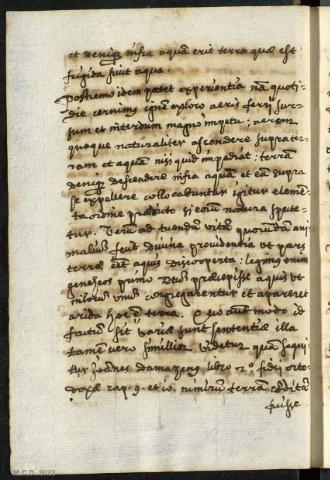 et deniq; infra aquā erit terra quæ est
frigida sicut aqua.
Postremo idem patet experientia nā quoti-
die cernimus ignē exploro aeris ferri sur-
sum et interdum magno impetu; aerem
quoque naturaliter ascendere supra ter-
ram et aquam nisi quid impediat; terrā
deniq; descendere infra aquā et eā supra
se expellere collocabuntur igitur elemē-
ta ratione prædicto si eorū natura specte-
tur. Verū ad tuendā vitā quorundā ani-
maliū fecit divina providentia ut pars
terræ esset aquis discooperta: legimus enim
geneseos primo Deū præcepisse aquis ut
in locum unum congregarentur et appareret
arida hoc ē terra. Quo autē modo id
factum sit variæ sunt sententiæ illa
tamē vero similior videtur quā sequi
tur Joānes damascenus libro 2º fidei orto-
doxæ cap. 9. et 10. nimirum terrā conditā
fuisse
M.C.D. 2022